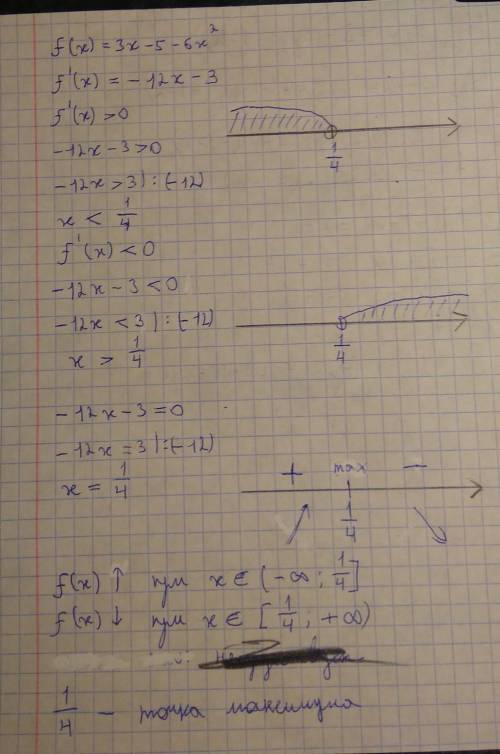 f(x) = 3x - 5 - 6x²
f'(x) = -12x - 3
f'(x) > 0
-12x - 3 > 0
1/4
-12x > 3 | : (-12)
x < 1/4
f'(x) < 0
-12x - 3 < 0
-12x < 3 | : (-12)
1/4
x > 1/4
-12x - 3 = 0
-12x = 3 | : (-12)
x = 1/4
+ max -
1/4
f(x) ↑ при x ∈ (-∞; 1/4]
f(x) ↓ при x ∈ [1/4; +∞)
1/4 - точка максимума